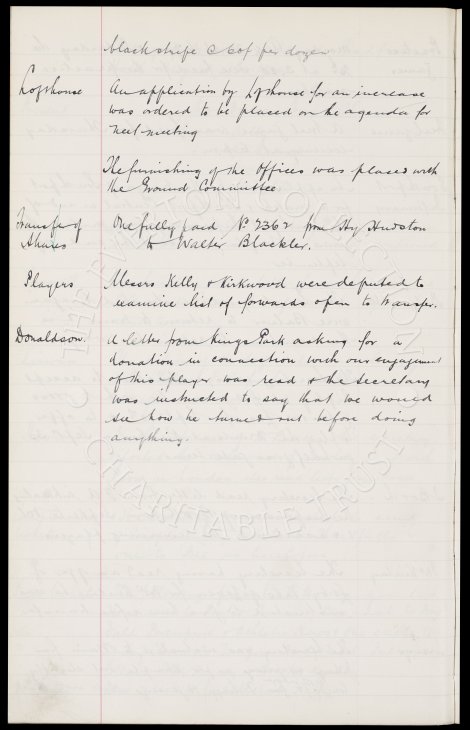 black stripe @ 60/- per dozen
Lofthouse An application by Lofthouse for an increase
was ordered to be placed on the agenda for
next meeting
The furnishing of the Offices was placed with
the Ground Committee
Transfer of One fully paid No 2362 from Hy Hudston
Shares to Walter Blackler.
Players Messrs Kelly & Kirkwood were deputed to
examine list of forwards open to transfer.
Donaldson. A letter from Kings Park asking for a
donation in connection with our engagement
of this player was read & the Secretary
was instructed to say that we would
see how he turned out before doing
anything.
THE EVERTON COLLECTION
CHARITABLE TRUST